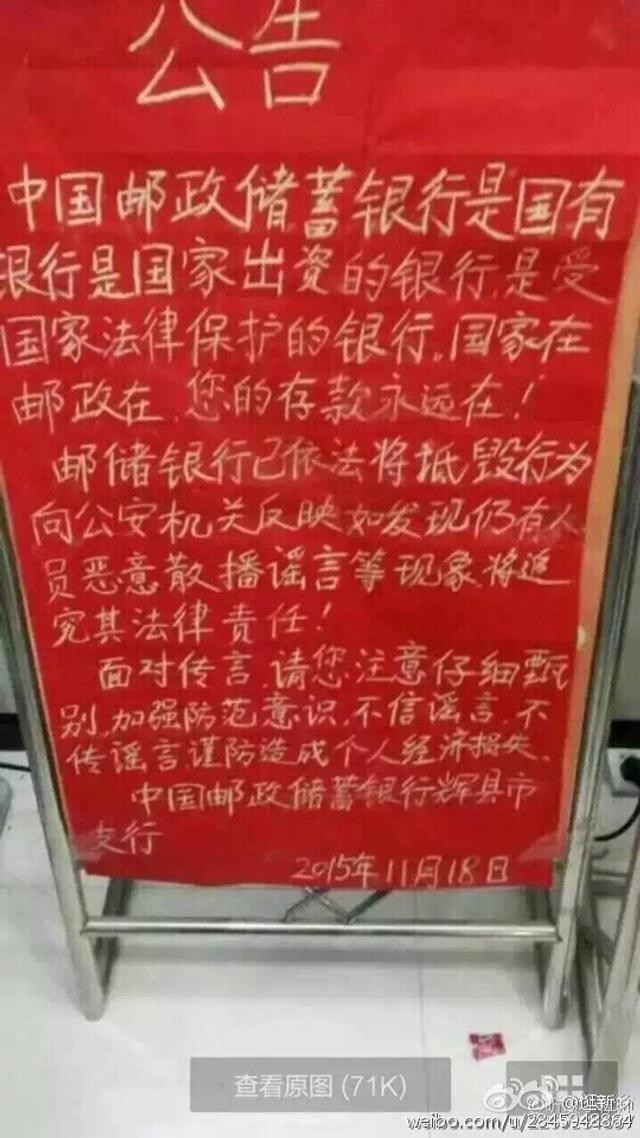 公告
中国邮政储蓄银行是国有
银行是国家出资的银行,是受
国家法律保护的银行。国家在
邮政在,您的存款永远在!
邮储银行已依法将抵毁行为
向公安机关反映如发现仍有人
员恶意散播谣言等现象,将追
究其法律责任!
面对传言,请您注意仔细甄
别,加强防范意识,不信谣言,不
传谣言谨防造成个人经济损失、
中国邮政储蓄银行辉县市
支行
2015年11月18日
查看原图 (71K)
weibo.com/u/2845948864